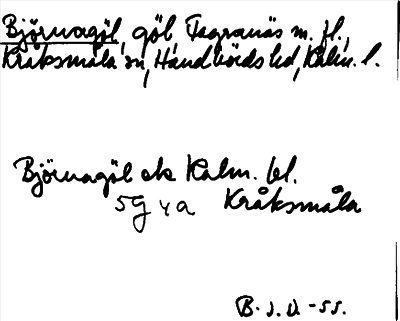 Björnagöl, göl, Tagranäs m. fl.,
Kråksmåla sn, Handbörds hd, Kalm. l.
Björnagöl ek Kalm. bl.
5G 4a Kråksmåla
B. J. U. -55.